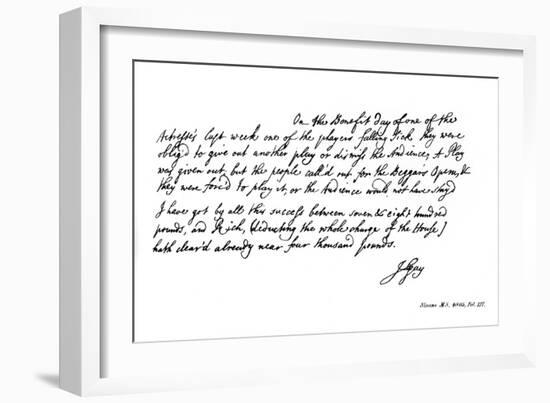 On the Benefit day of one of the
Actresses last week one of the players falling sick they were
oblig'd to give out another play or dismiss the Audience, A Play
was given out, but the people call'd out for the Beggars Opera, &
they were forc'd to play it, or the Audience would not have stay'd
I have got by all this success between seven & eight hundred
pounds, and Rich, (deducting the whole charge of the House)
hath clear'd already near four thousand pounds.
J Gay
M.S. Fol.